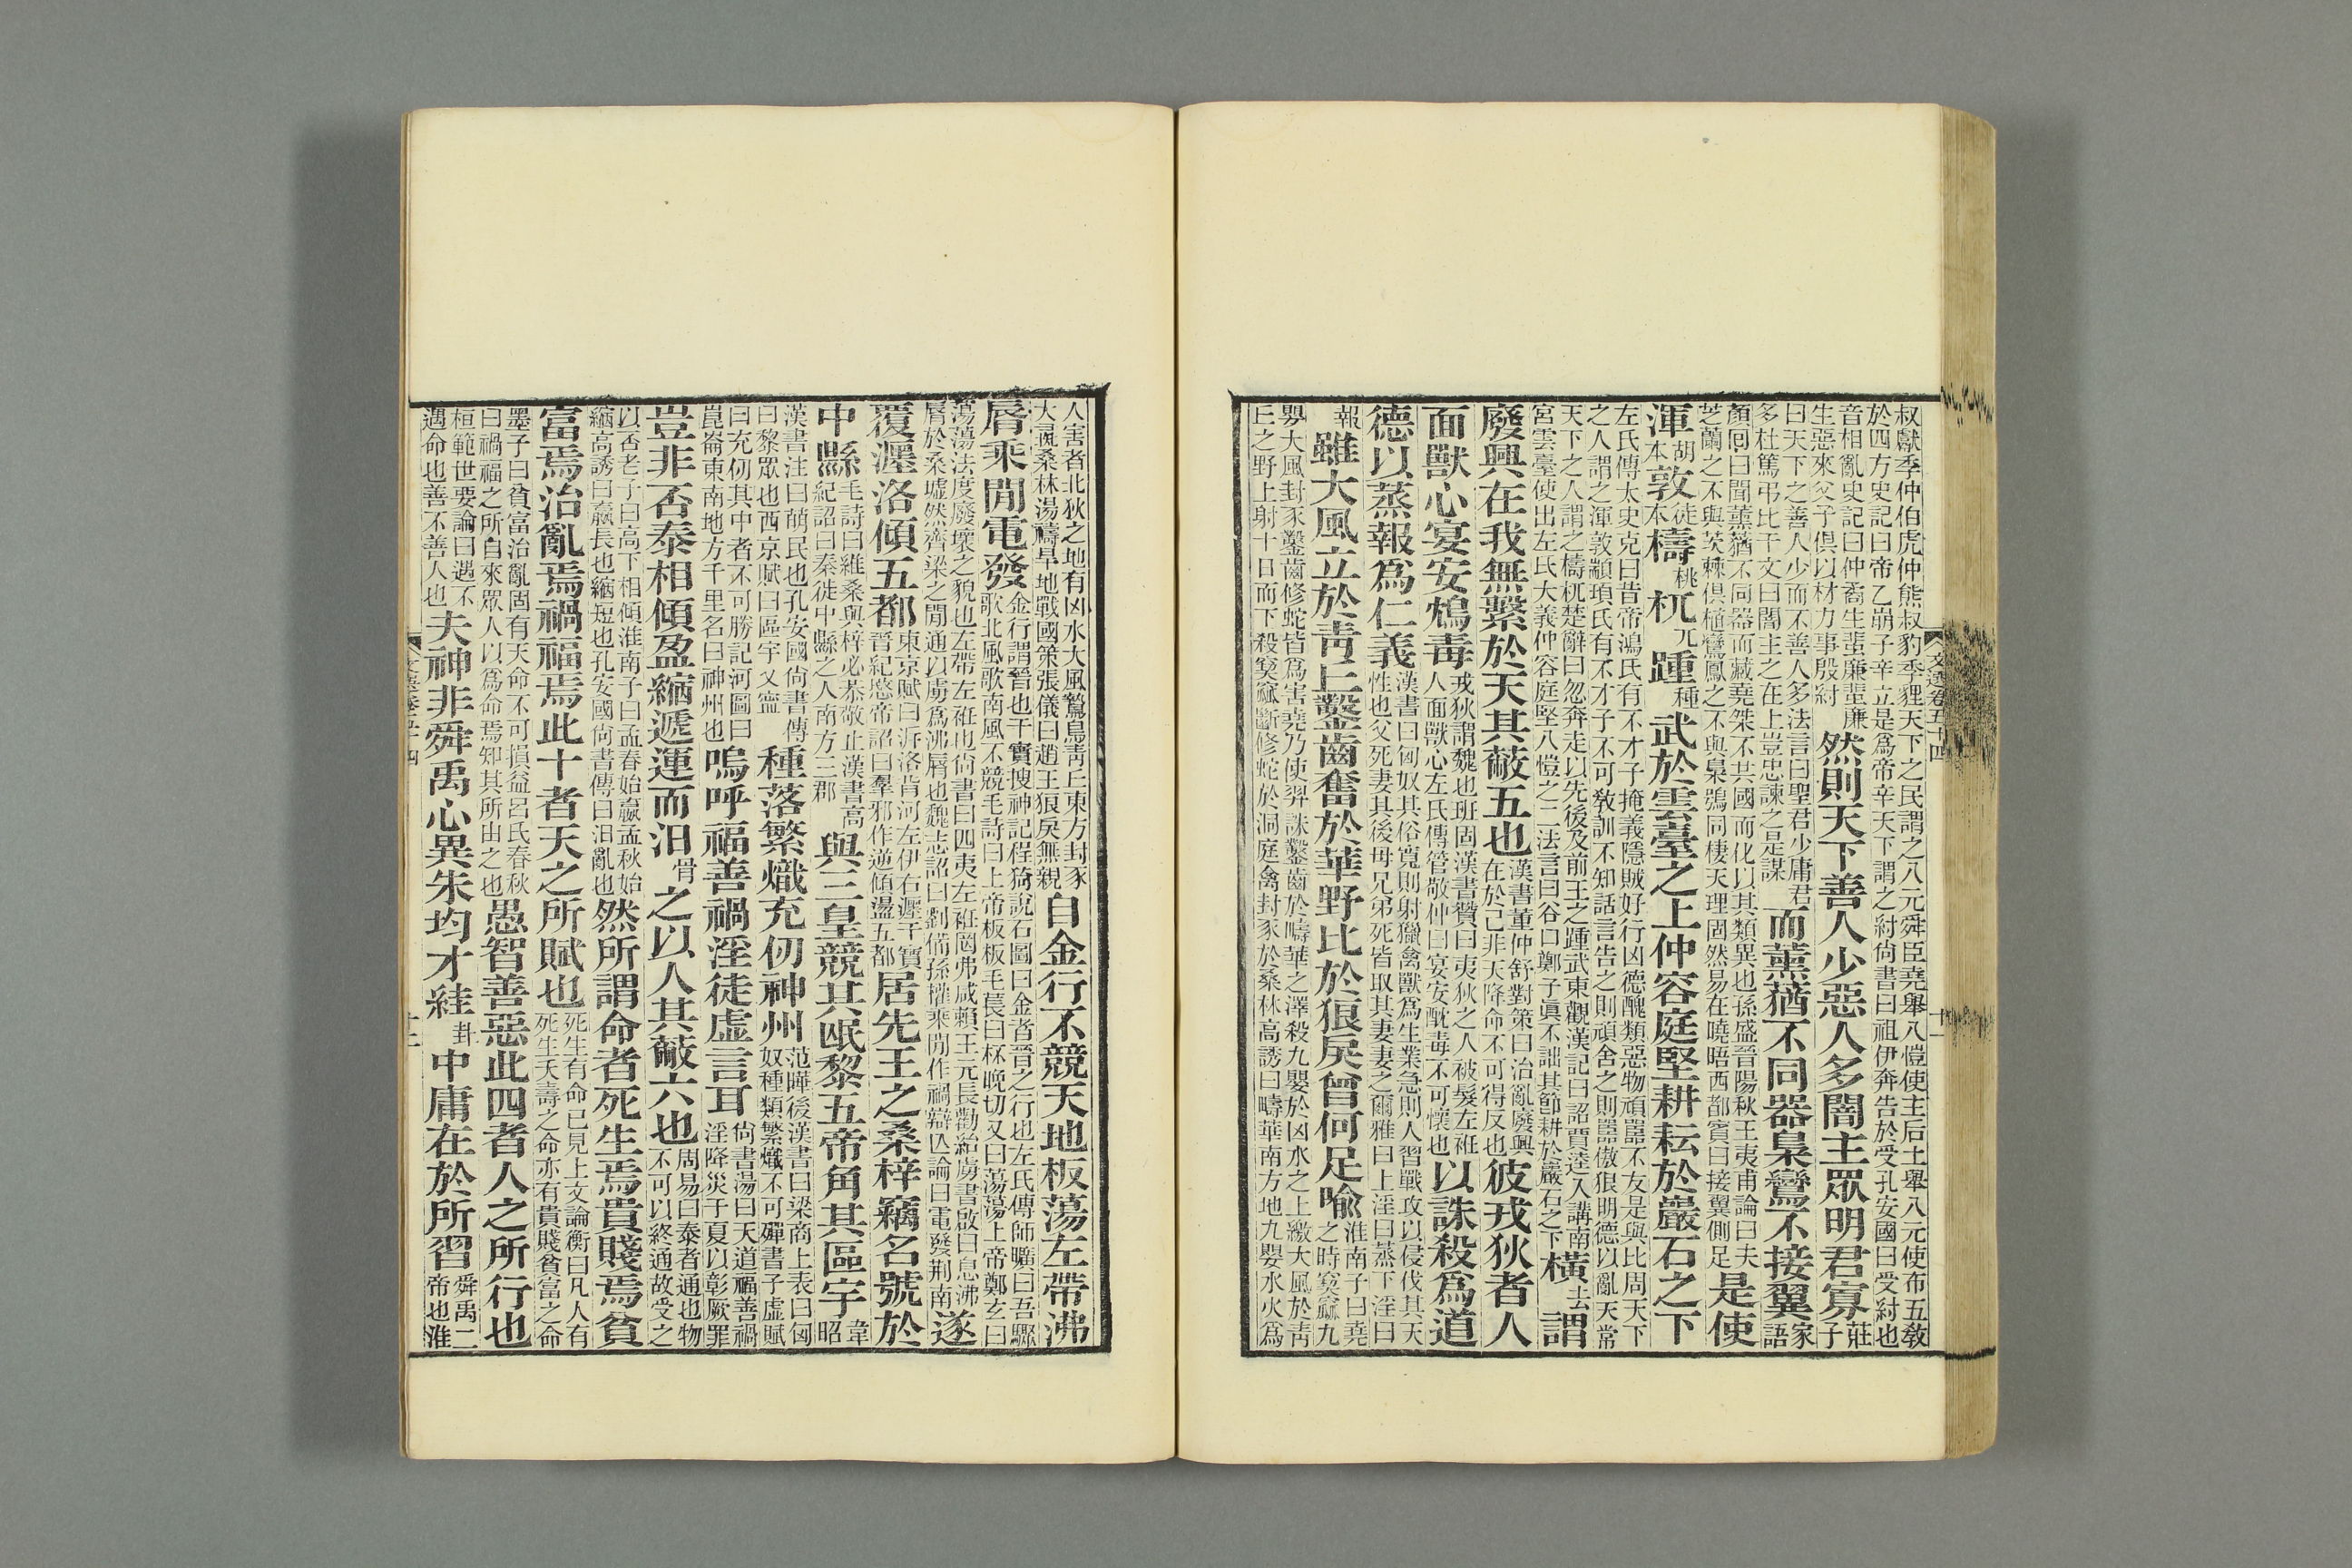 叔獻季仲伯虎仲熊叔豹季貍天下之民謂之八元舜臣堯舉八愷使主后土舉八元使布五敎
於四方史記曰帝乙崩子辛立是爲帝辛天下謂之紂尙書曰祖伊奔告於受孔安國曰受紂也
音相亂史記曰仲裔生蜚廉蜚廉生惡來父子俱以材力事殷紂然則天下善人少惡人多闇主眾明君寡莊子
曰天下之善人少而不善人多法言曰聖君少庸君多杜篤弔比干文曰闇主之在上豈忠諫之是謀而薰蕕不同器梟鸞不接翼家語
顏回曰聞薰蕕不同器而藏堯桀不共國而化以其類異也孫盛晉陽秋王夷甫論曰夫芝蘭之不與茨棘俱植鸞鳳之不與梟鴞同棲天理固然易在曉晤西都賓曰接翼側足是使
渾胡本敦徒本檮桃杌兀踵種武於雲臺之上仲容庭堅耕耘於巖石之下
左氏傳太史克曰昔帝鴻氏有不才子掩義隱賊好行凶德醜類惡物頑嚚不友是與比周天下
之人謂之渾敦顓頊氏有不才子不可敎訓不知話言告之則頑舍之則嚚傲狠明德以亂天常
天下之人謂之檮杌楚辭曰忽奔走以先後及前王之踵武東觀漢記曰詔賈逵入講南宮雲臺使出左氏大義仲容庭堅八愷之二法言曰谷口鄭子眞不詘其節耕於巖石之下橫去謂
廢興在我無繫於天其蔽五也漢書董仲舒對策曰治亂廢興在於己非天降命不可得反也彼戎狄者人
面獸心宴安鴆毒戎狄謂魏也班固漢書贊曰夷狄之人被髮左衽人面獸心左氏傳管敬仲曰宴安酖毒不可懷也以誅殺爲道
德以蒸報爲仁義漢書曰匈奴其俗寬則射獵禽獸爲生業急則人習戰攻以侵伐其天性也父死妻其後母兄弟死皆取其妻妻之爾雅曰上淫曰蒸下淫曰
報雖大風立於靑丘鑿齒奮於華野比於狼戾曾何足喻淮南子曰堯之時窫窳九
嬰大風封豕鑿齒修蛇皆爲害堯乃使羿誅鑿齒於疇華之澤殺九嬰於凶水之上繳大風於靑
丘之野上射十日而下殺窫窳斷修蛇於洞庭禽封豕於桑林高誘曰疇華南方地九嬰水火爲
人害者北狄之地有凶水大風鷙鳥靑丘東方封豕大彘桑林湯禱旱地戰國策張儀曰趙王狼戾無親自金行不競天地板蕩左帶沸
脣乘閒電發金行謂晉也干寶搜神記程猗說石圖曰金者晉之行也左氏傳師曠曰吾驟歌北風歌南風不競毛詩曰上帝板板毛萇曰杯晚切又曰蕩蕩上帝鄭玄曰
蕩蕩法度廢壞之貌也左帶左衽也尙書曰四夷左衽罔弗咸賴王元長勸給虜書啟曰息沸脣於桑墟然齊梁之閒通以虜爲沸脣也魏志詔曰劉備孫權乘閒作禍辯亾論曰電發荆南遂
覆瀍洛傾五都東京賦曰泝洛背河左伊右瀍干寶晉紀愍帝詔曰羣邪作逆傾盪五都居先王之桑梓竊名號於
中縣毛詩曰維桑與梓必恭敬止漢書高紀詔曰秦徙中縣之人南方三郡與三皇競其氓黎五帝角其區宇韋昭
漢書注曰萌民也孔安國尙書傳曰黎眾也西京賦曰區宇乂寧種落繁熾充仞神州范曄後漢書曰梁商上表曰匈奴種類繁熾不可殫書子虛賦
曰充仞其中者不可勝記河圖曰崑崙東南地方千里名曰神州也嗚呼福善禍淫徒虛言耳尙書湯曰天道福善禍淫降災于夏以彰厥罪
豈非否泰相傾盈縮遞運而汨骨之以人其蔽六也周易曰泰者通也物不可以終通故受之
以否老子曰高下相傾淮南子曰孟春始嬴孟秋始縮高誘曰嬴長也縮短也孔安國尙書傳曰汨亂也然所謂命者死生焉貴賤焉貧
富焉治亂焉禍福焉此十者天之所賦也死生有命已見上文論衡曰凡人有死生夭壽之命亦有貴賤貧富之命
墨子曰貧富治亂固有天命不可損益呂氏春秋曰禍福之所自來眾人以爲命焉知其所由之也愚智善惡此四者人之所行也
桓範世要論曰遇不遇命也善不善人也夫神非舜禹心異朱均才絓卦中庸在於所習舜禹二帝也淮